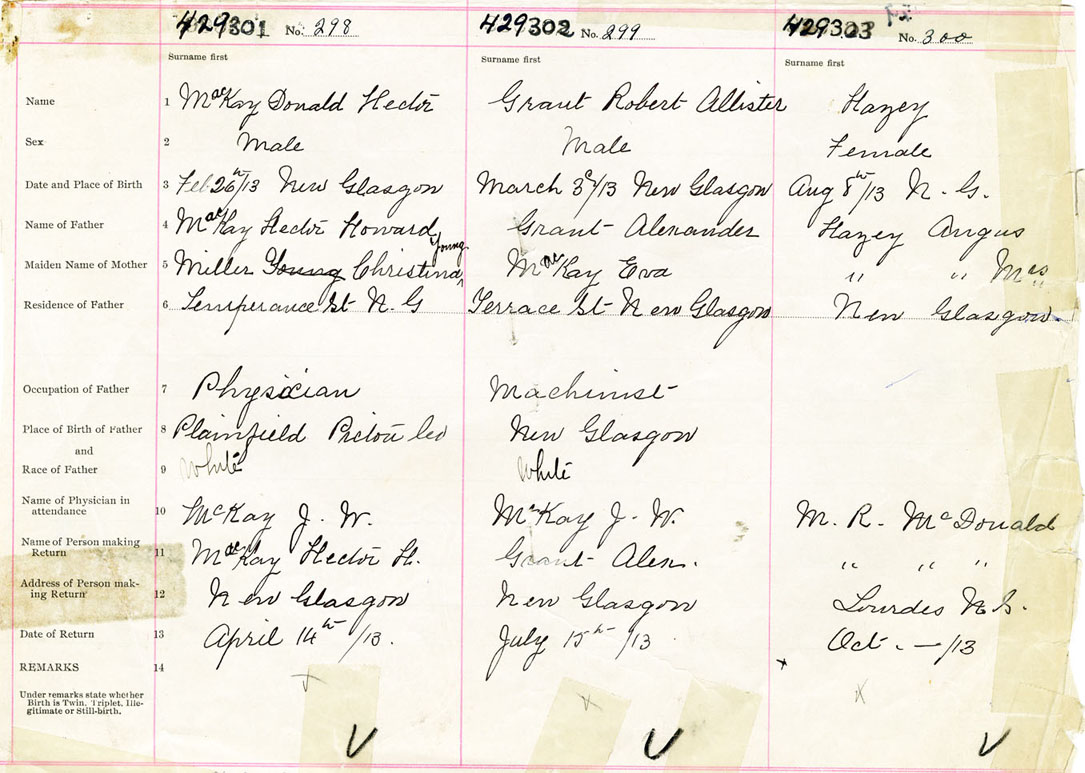 429301 No. 298 429302 No. 299 429303 No. 300
Surname first Surname first Surname first
Name 1 MacKay Donald Hector Grant Robert Allister Hazey
Sex 2 Male Male Female
Date and Place of Birth 3 Feb 26th/13 New Glasgow March 3d/13 New Glasgow Aug 8th/13 N. G.
Name of Father 4 MacKay Hector Howard Grant Alexander Hazey Angus
Young
Maiden Name of Mother 5 Miller Young Christina MacKay Eva " " Mrs "
Residence of Father 6 Temperance St N. G Terrace St New Glasgow New Glasgow
Occupation of Father 7 Physician Machinist
Place of Birth of Father 8 Plainfield Pictou Co New Glasgow
and
Race of Father 9 White White
Name of Physician in
attendance 10 McKay J. W. McKay J. W. M. R. McDonald
Name of Person making
Return 11 MacKay Hector H. Grant Alex. " " "
Address of Person mak-
ing Return 12 New Glasgow New Glasgow Lourdes N.S.
Date of Return 13 April 14th/13. July 15th/13 Oct. —/13
REMARKS 14
Under remarks state whether
Birth is Twin, Triplet, Ille-
gitimate or Still-birth.